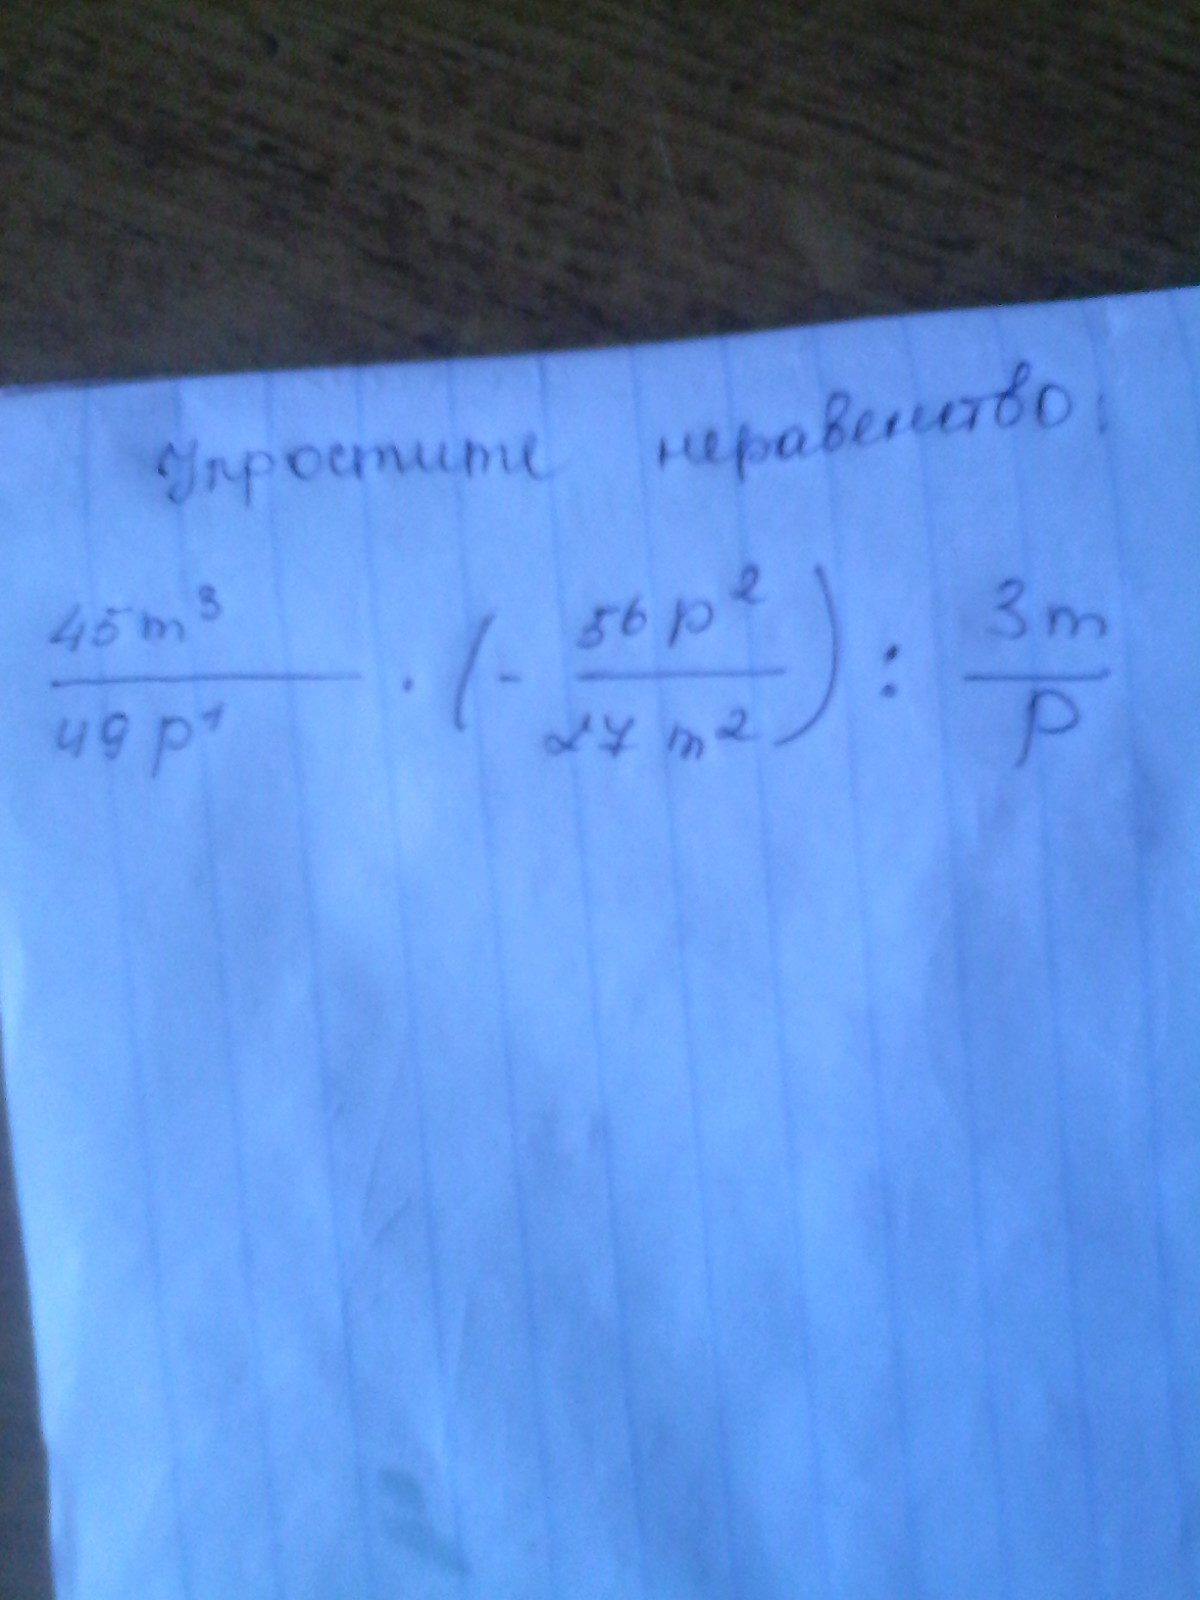 Упростите неравенство:
45m³ / 49p¹ · (- 56p² / 27m²) : 3m / p